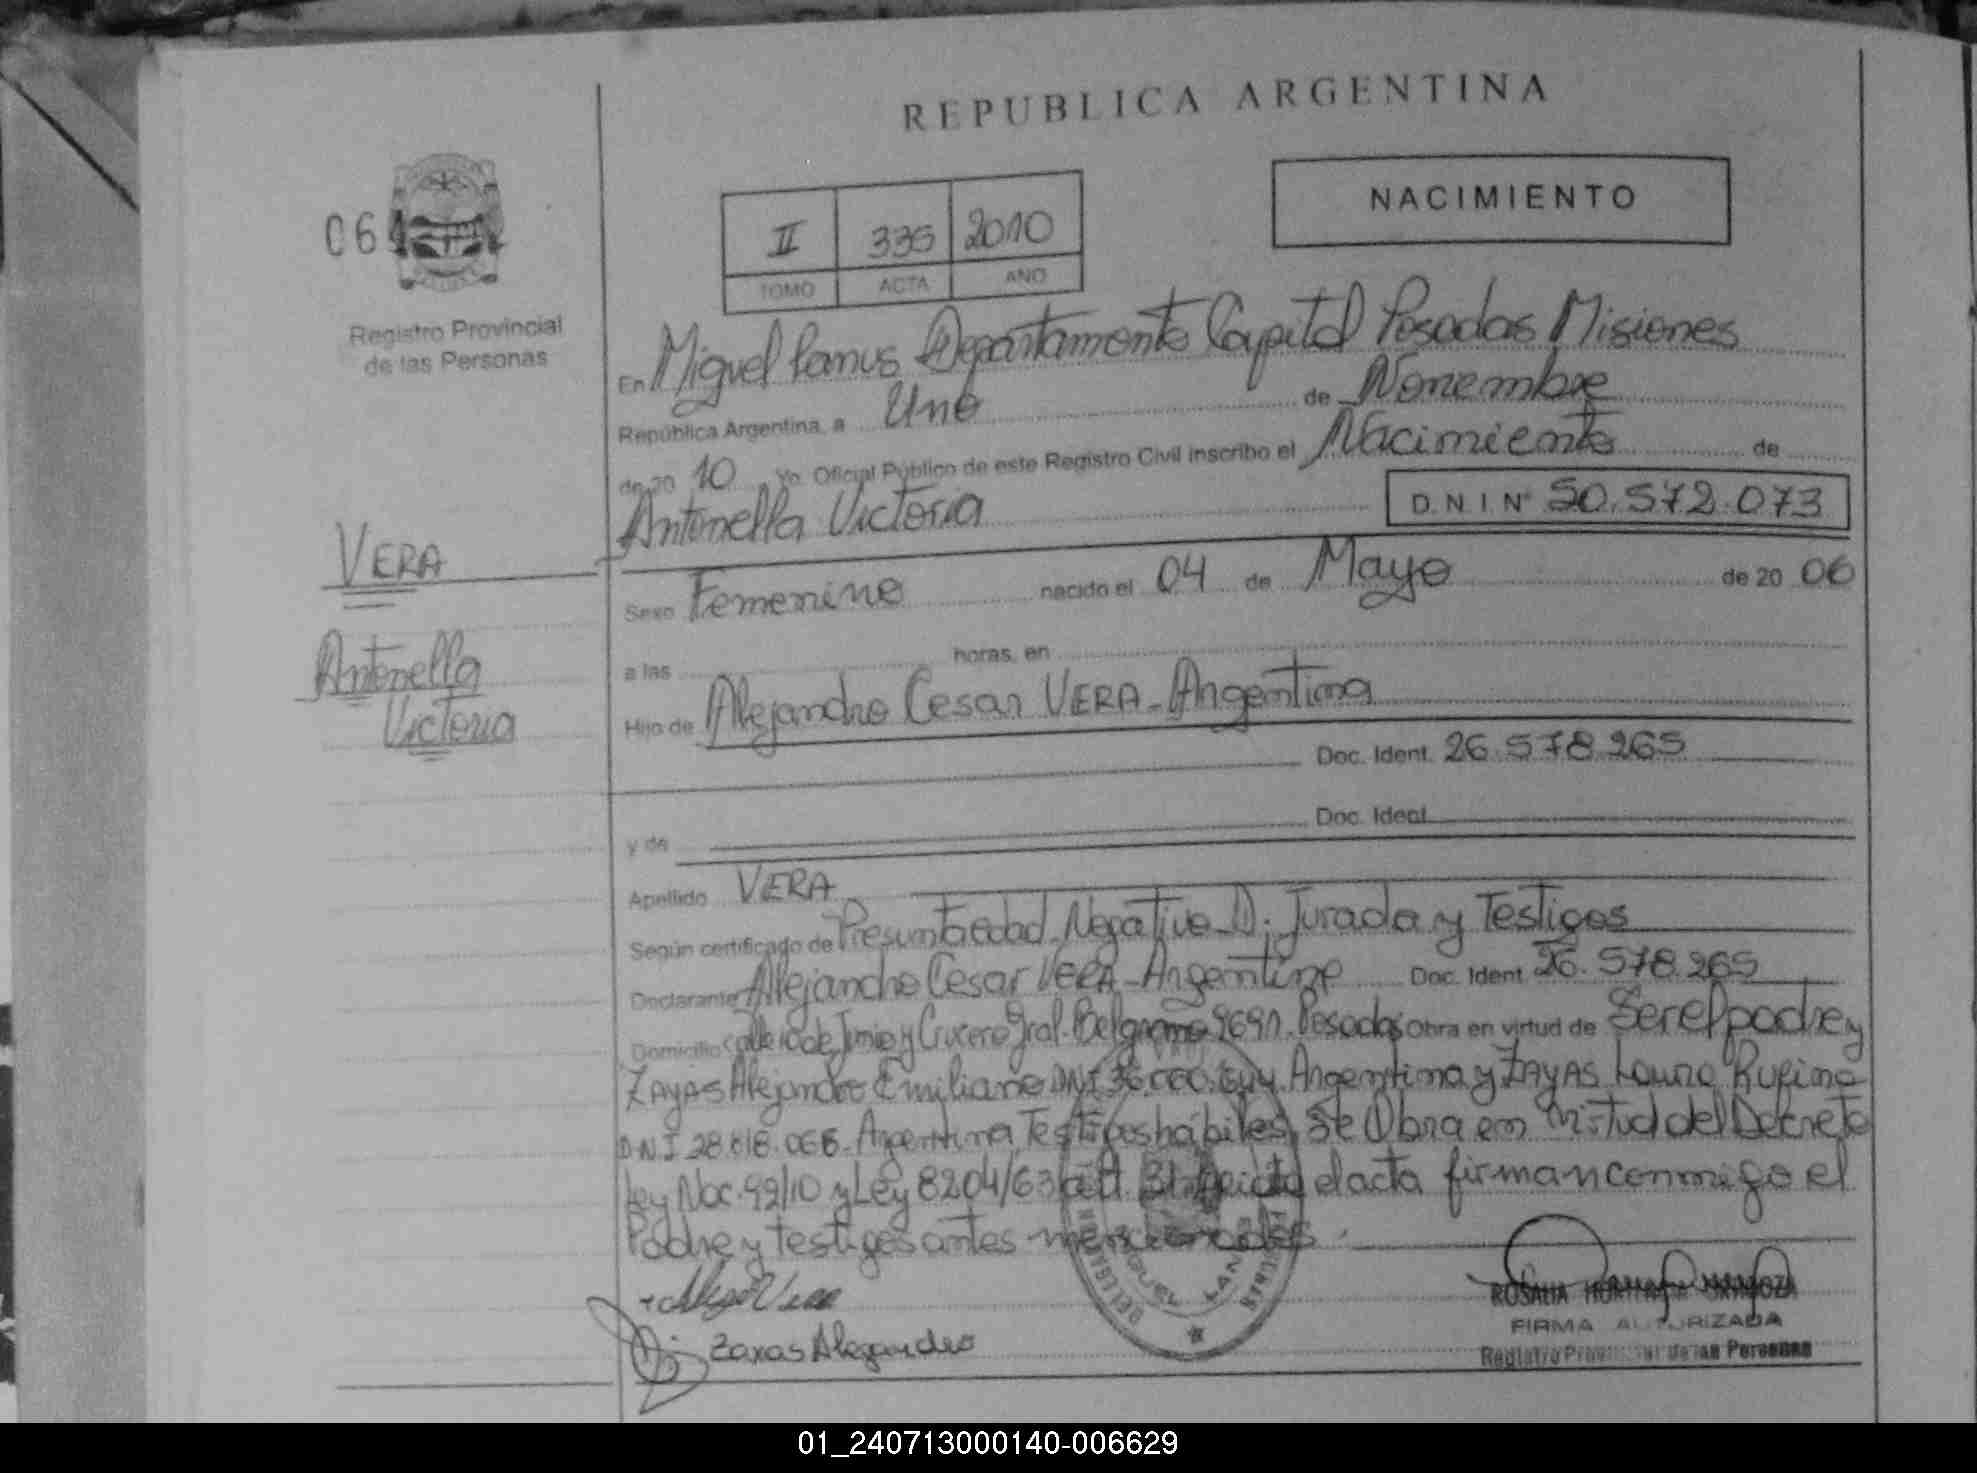 REPUBLICA ARGENTINA
NACIMIENTO
II 335 2010
TOMO ACTA AÑO
06
Registro Provincial
de las Personas
En Miguel Lanus Departamento Capital Posadas Misiones
República Argentina, a Uno de Noviembre
de 20 10 Yo Oficial Público de este Registro Civil inscribo el Nacimiento de
Antonella Victoria D.N.I Nº 50.572.073
VERA
Antonella
Victoria
Sexo Femenino nacido el 04 de Mayo de 20 06
a las horas, en
Hijo de Alejandro Cesar VERA - Argentina
Doc. Ident. 26.578.265
y de Doc. Ident.
Apellido VERA
Según certificado de Presunta edad Negativo D. Jurada y Testigos
Declarante Alejandro Cesar VERA - Argentino Doc. Ident. 26.578.265
Domicilio calle 10 de Junio y Crucero Gral. Belgrano 9691. Posadas Obra en virtud de Ser el padre y
ZAYAS Alejandro Emiliano DNI 36. Argentina y ZAYAS Laura Rufina
DNI 28.818.066 - Argentina Testigos hábiles, Se Obra en virtud del Decreto
Ley Nac. 92/10 y Ley 8204/63 el acta firman conmigo el
Padre y testigos antes mencionados
Zayas Alejandro
DELEGACION
MIGUEL LANUS
ROSALIA MENDOZA
FIRMA AUTORIZADA
Registro Provincial de las Personas
01_240713000140-006629